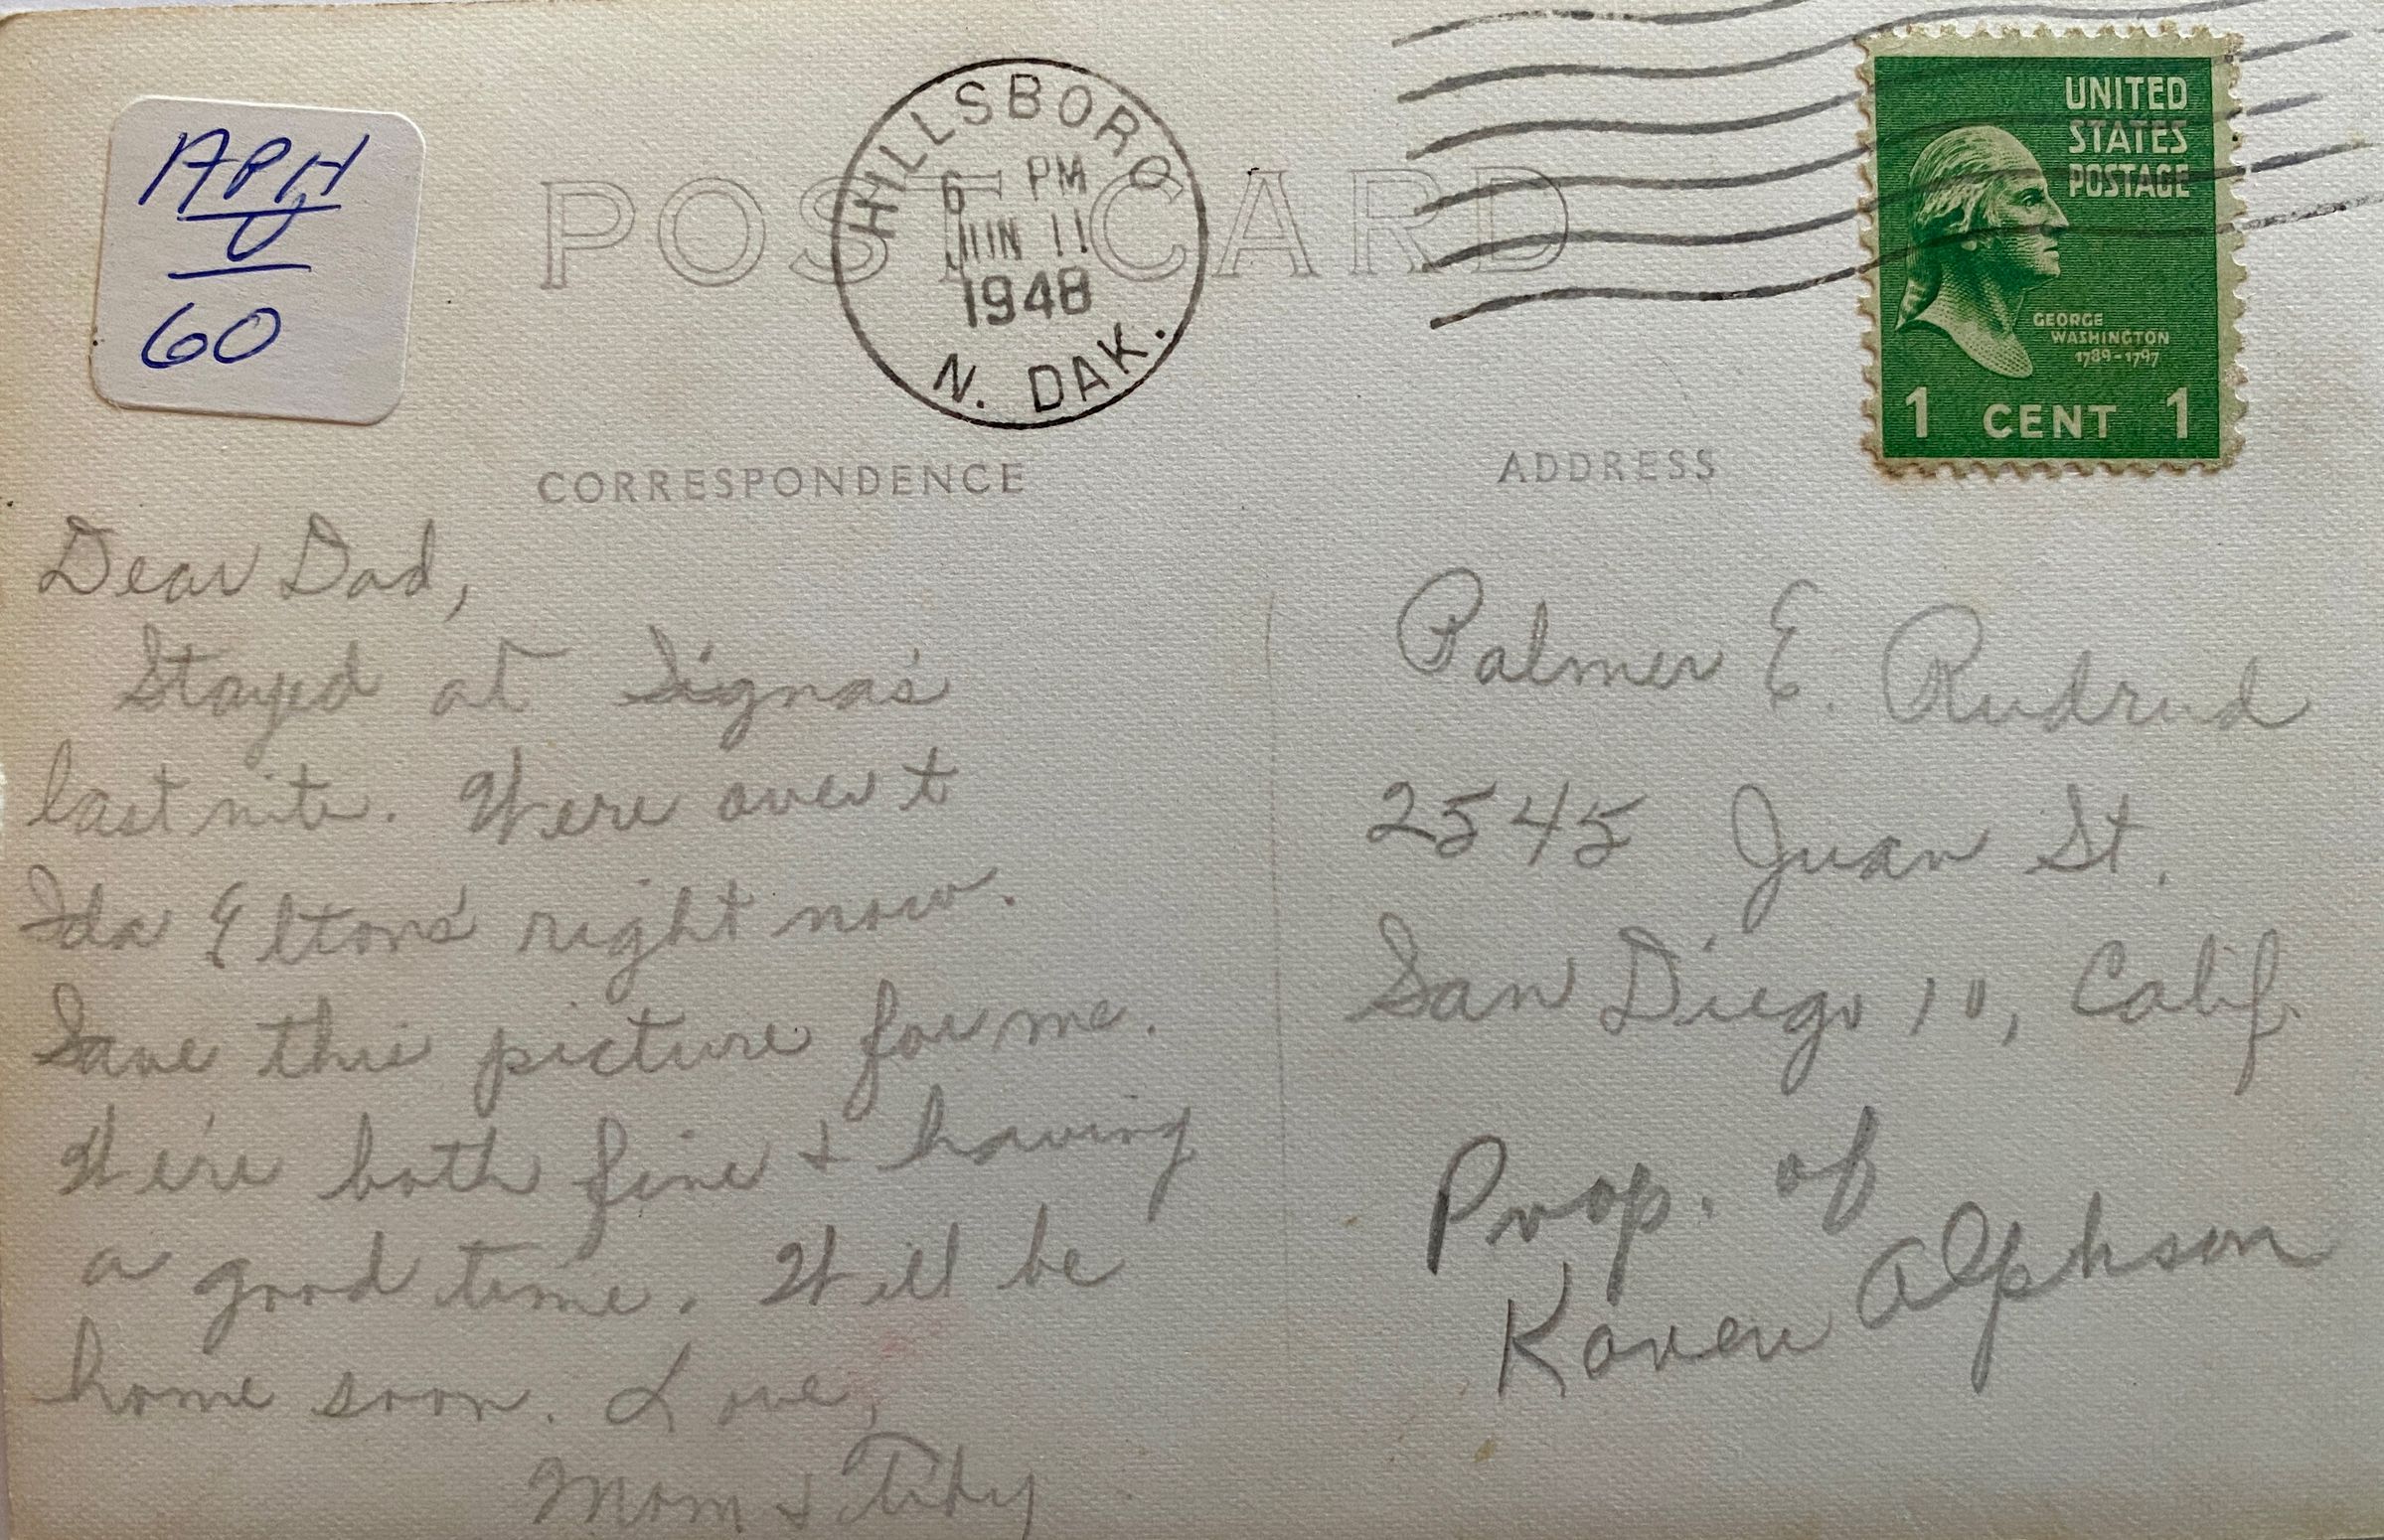 APH
60
POST CARD
HILLSBORO
6 PM
JUN 11
1948
N. DAK.
UNITED
STATES
POSTAGE
GEORGE
WASHINGTON
1789-1797
1 CENT 1
CORRESPONDENCE
ADDRESS
Dear Dad,
Stayed at Signa's
last nite. Were over t
Ida Elton's right now.
Save this picture for me.
We're both fine & having
a good time. Will be
home soon. Love,
Mom &
Palmer E. Rudrud
2545 Juan St.
San Diego 10, Calif.
Prop. of
Karen Alphson